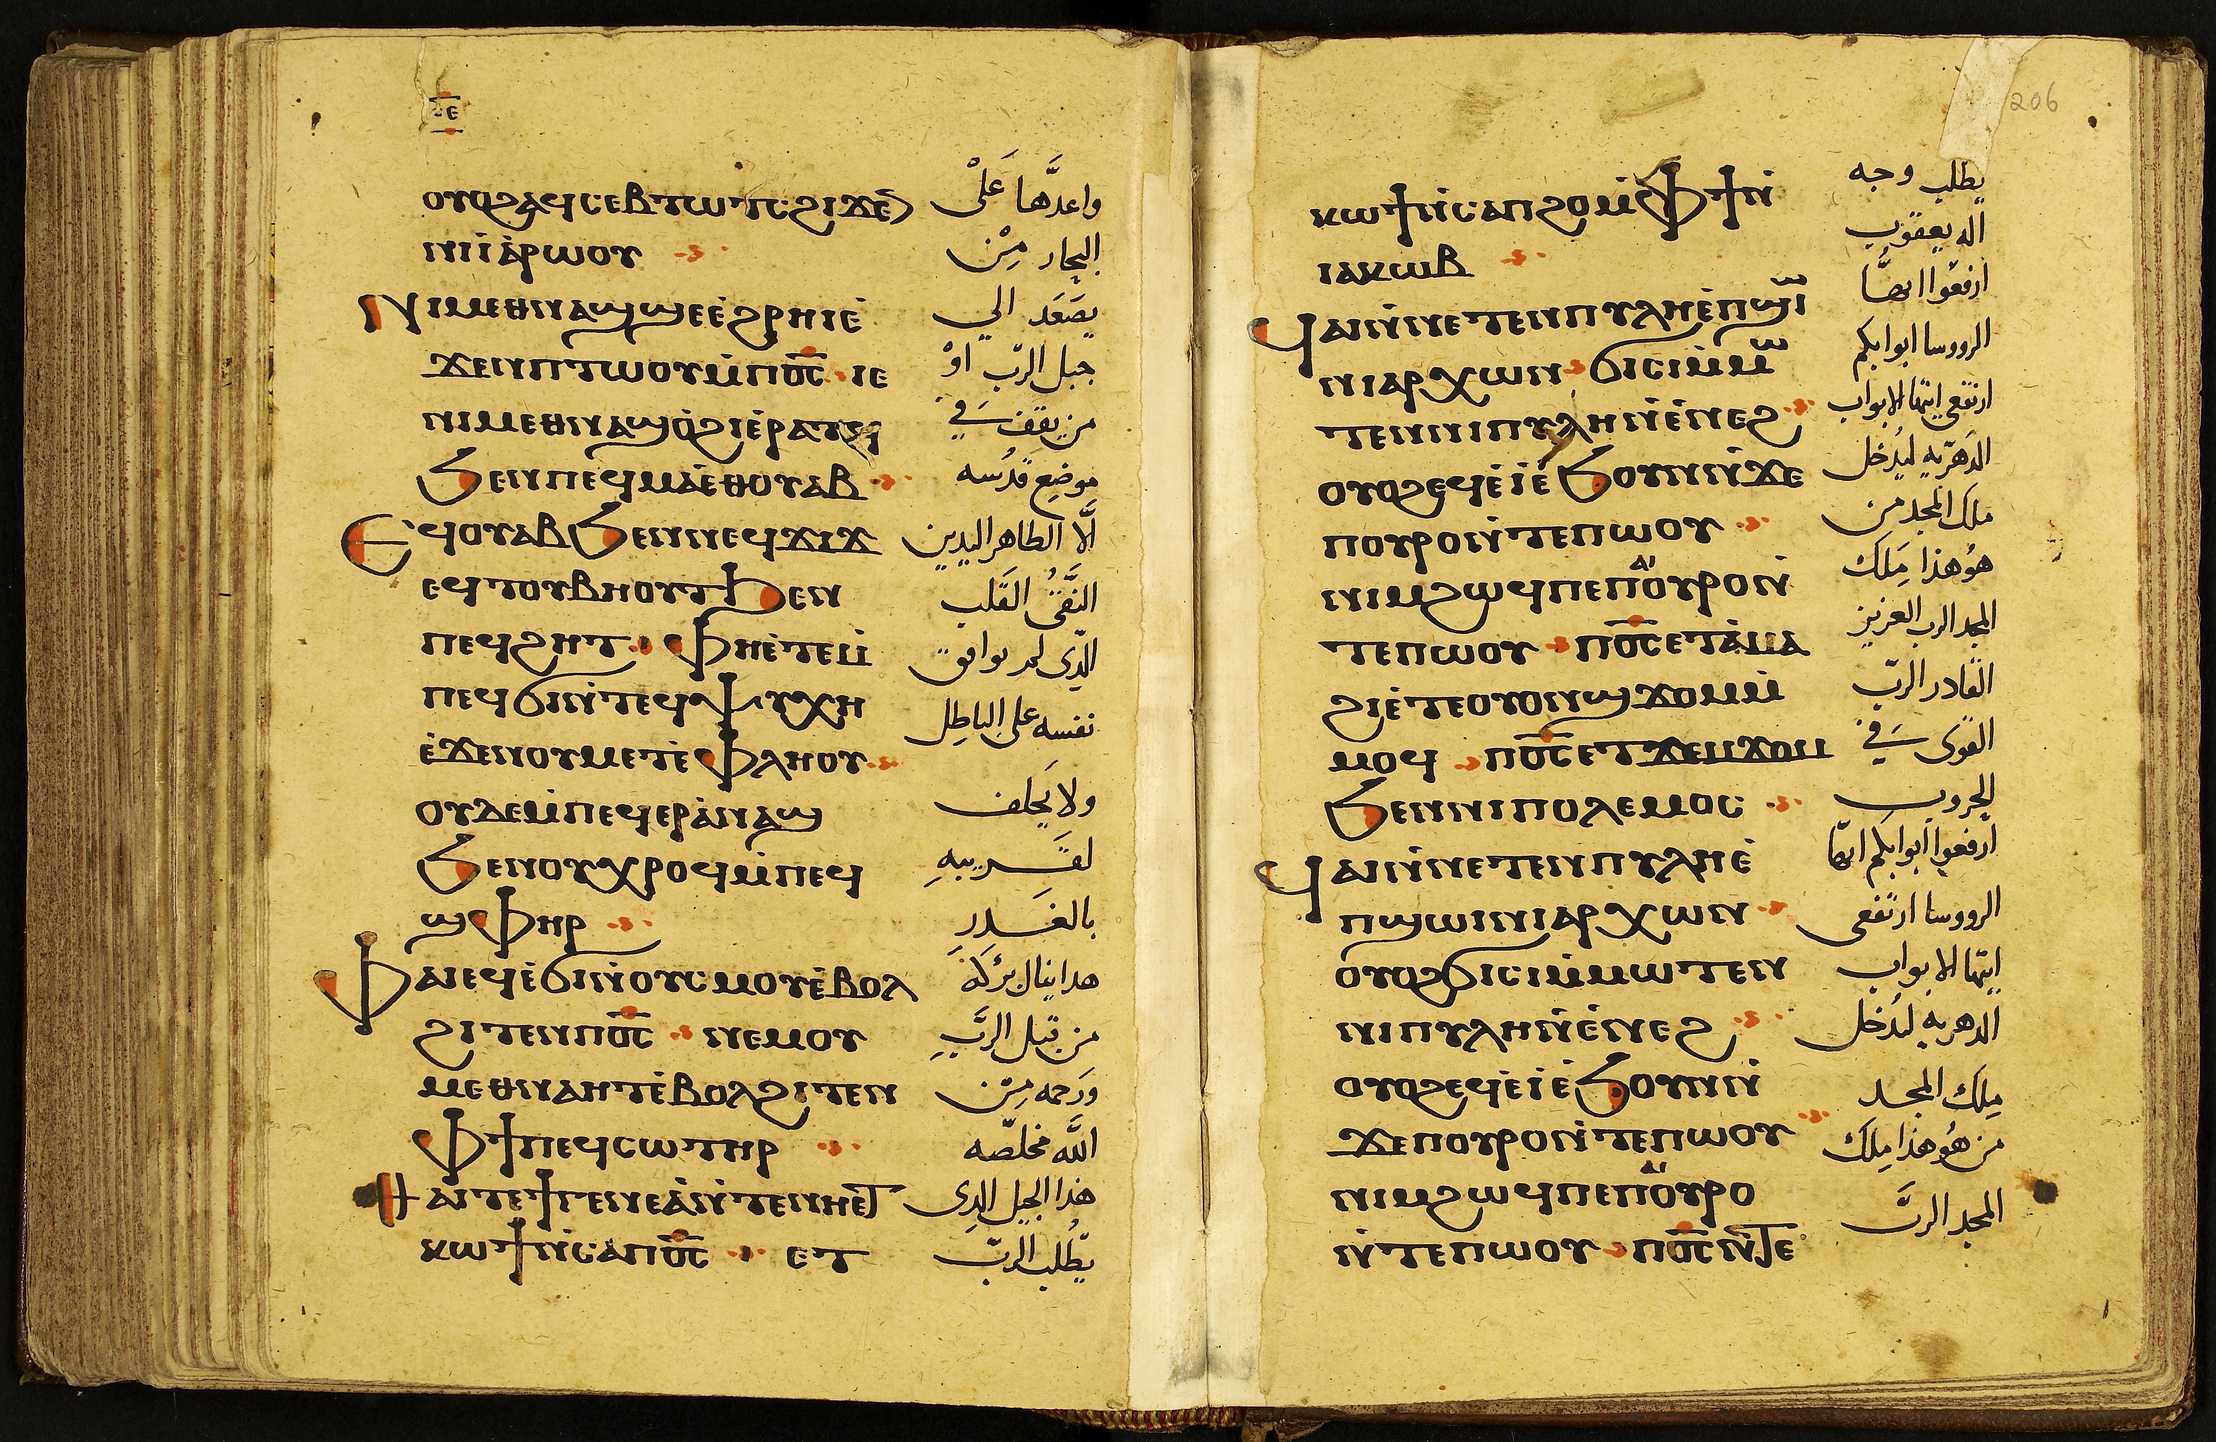 ⲟⲩⲟϩⲁϥⲥⲉⲃⲧⲱⲧⲥϩⲓϫⲉⲛ
ⲛⲓⲓⲁⲣⲱⲟⲩ
ⲛⲓⲙⲉⲑⲛⲁϣϣⲉⲉϩⲣⲏⲓⲉ
ϫⲉⲛⲡⲧⲱⲟⲩⲙⲡⲟ̅ⲥ̅ ⲓⲉ
ⲛⲓⲙⲉⲑⲛⲁϣⲟϩⲓⲉⲣⲁⲧϥ
ϧⲉⲛⲡⲉϥⲙⲁⲉⲑⲟⲩⲁⲃ
ⲉϥⲟⲩⲁⲃϧⲉⲛⲛⲉϥϫⲓϫ
ⲉϥⲧⲟⲩⲃⲏⲟⲩⲧϧⲉⲛ
ⲡⲉϥϩⲏⲧ ⲫⲏⲉⲧⲉⲙ
ⲡⲉϥϭⲓⲛⲧⲉϥⲯⲩⲭⲏ
ⲉϫⲉⲛⲟⲩⲙⲉⲧⲉⲫⲗⲏⲟⲩ
ⲟⲩⲇⲉⲙⲡⲉϥⲉⲣⲁⲛⲁϣ
ϧⲉⲛⲟⲩⲭⲣⲟϥⲙⲡⲉϥ
ϣⲫⲏⲣ
ⲫⲁⲓⲉϥⲉϭⲓⲛⲟⲩⲥⲙⲟⲩⲉⲃⲟⲗ
ϩⲓⲧⲉⲛⲡⲟ̅ⲥ̅ ⲛⲉⲙⲟⲩ
ⲙⲉⲑⲛⲁⲏⲧⲉⲃⲟⲗϩⲓⲧⲉⲛ
ⲫϯⲡⲉϥⲥⲱⲧⲏⲣ
ⲑⲁⲓⲧⲉϯⲅⲉⲛⲉⲁⲛⲧⲉⲛⲏⲉⲧ
ⲕⲱϯⲛⲥⲁⲡⲟ̅ⲥ̅ ⲉⲧ
واعدَّها عَلَى
البحار مِنْ
يصَعَد الي
جبل الربّ اوْ
من يقف في
موضع قدسه
الَّا الطاهر اليدين
النَّقىُ القَلب
الّذى لم يوافق
نفسه على الباطِل
ولا يَحلف
لقريبهِ
بالغَدرِ
هدا ينال بَركَه
من قبل الربَّ
ورَحمه مِن
اللَّه مخلصّه
هٰذا الجيل الذى
يَطلب الربّ
206
ⲕⲱϯⲛⲥⲁⲡϩⲟⲙⲫϯⲛ
ⲓⲁⲕⲱⲃ
ϥⲁⲓⲛⲛⲉⲧⲉⲛⲡⲩⲗⲏⲉⲡϣⲱⲓ
ⲛⲓⲁⲣⲭⲱⲛ ϭⲓⲥⲓⲙⲙⲱ
ⲧⲉⲛⲛⲓⲡⲩⲗⲏⲛⲉⲛⲉϩ
ⲟⲩⲟϩⲉϥⲉⲓⲉϧⲟⲩⲛⲛϫⲉ
ⲡⲟⲩⲣⲟⲛⲧⲉⲡⲱⲟⲩ
ⲛⲓⲙϩⲱϥⲡⲉⲡⲁⲓⲟⲩⲣⲟⲛ
ⲧⲉⲡⲱⲟⲩ ⲡⲟ̅ⲥ̅ⲉⲧⲁⲙⲁ
ϩⲓⲉⲧⲉⲟⲩⲟⲛϣϫⲟⲙⲙ
ⲙⲟϥ ⲡⲟ̅ⲥ̅ⲉⲧϫⲉⲙϫⲟⲙ
ϧⲉⲛⲛⲓⲡⲟⲗⲉⲙⲟⲥ
ϥⲁⲓⲛⲛⲉⲧⲉⲛⲡⲩⲗⲏⲉ
ⲡϣⲱⲓⲛⲓⲁⲣⲭⲱⲛ
ⲟⲩⲟϩϭⲓⲥⲓⲙⲙⲱⲧⲉⲛ
ⲛⲓⲡⲩⲗⲏⲛⲉⲛⲉϩ
ⲟⲩⲟϩⲉϥⲉⲓⲉϧⲟⲩⲛⲛ
ϫⲉⲡⲟⲩⲣⲟⲛⲧⲉⲡⲱⲟⲩ
ⲛⲓⲙϩⲱϥⲡⲉⲡⲁⲓⲟⲩⲣⲟ
ⲛⲧⲉⲡⲱⲟⲩ ⲡⲟ̅ⲥ̅ⲛⲧⲉ
يطلب وجه
اله يعقوب
ارفعوا ايهّا
الرووسا ابوابكم
ارتفعى ايتها الابواب
الدهريه ليدُخل
ملك المجد من
هوُ هٰذا مَلك
المجد الرب العزيز
القادر الربّ
القوى في
الحروب
ارفعوا ابوابكم ايهّا
الرووسا ارتفعى
ايتها الابواب
الدهريه ليدُخل
مِلك المجد
من هُو هٰذا مِلك
المجد الربَّ